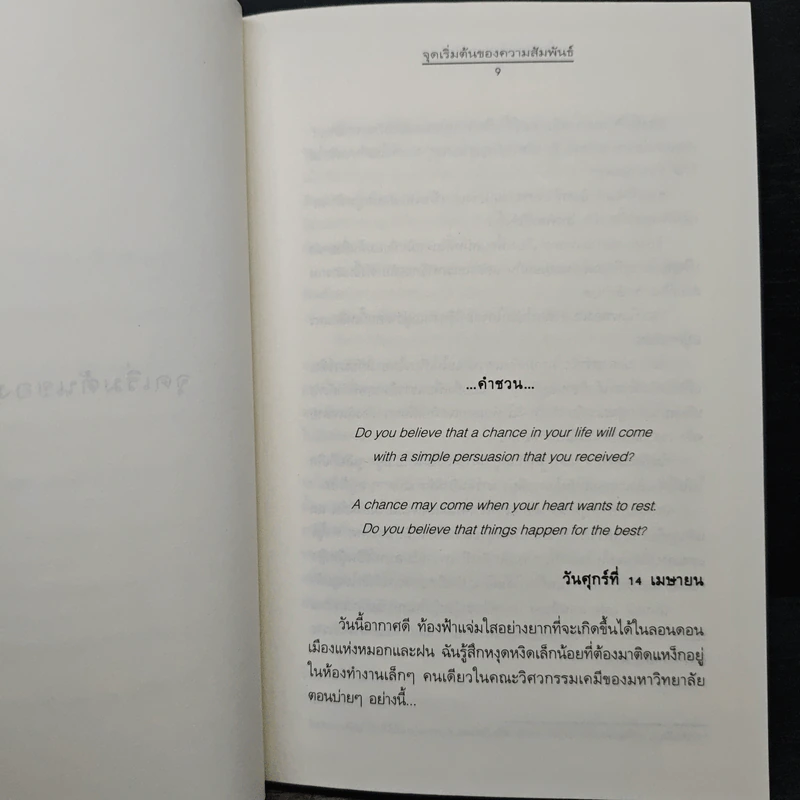 จุดเริ่มต้นของความสัมพันธ์
9
...คำชวน...
Do you believe that a chance in your life will come
with a simple persuasion that you received?
A chance may come when your heart wants to rest.
Do you believe that things happen for the best?
วันศุกร์ที่ 14 เมษายน
วันนี้อากาศดี ท้องฟ้าแจ่มใสอย่างยากที่จะเกิดขึ้นได้ในลอนดอน
เมืองแห่งหมอกและฝน ฉันรู้สึกหงุดหงิดเล็กน้อยที่ต้องมาติดแหง็กอยู่
ในห้องทำงานเล็กๆ คนเดียวในคณะวิศวกรรมเคมีของมหาวิทยาลัย
ตอนบ่ายๆ อย่างนี้...